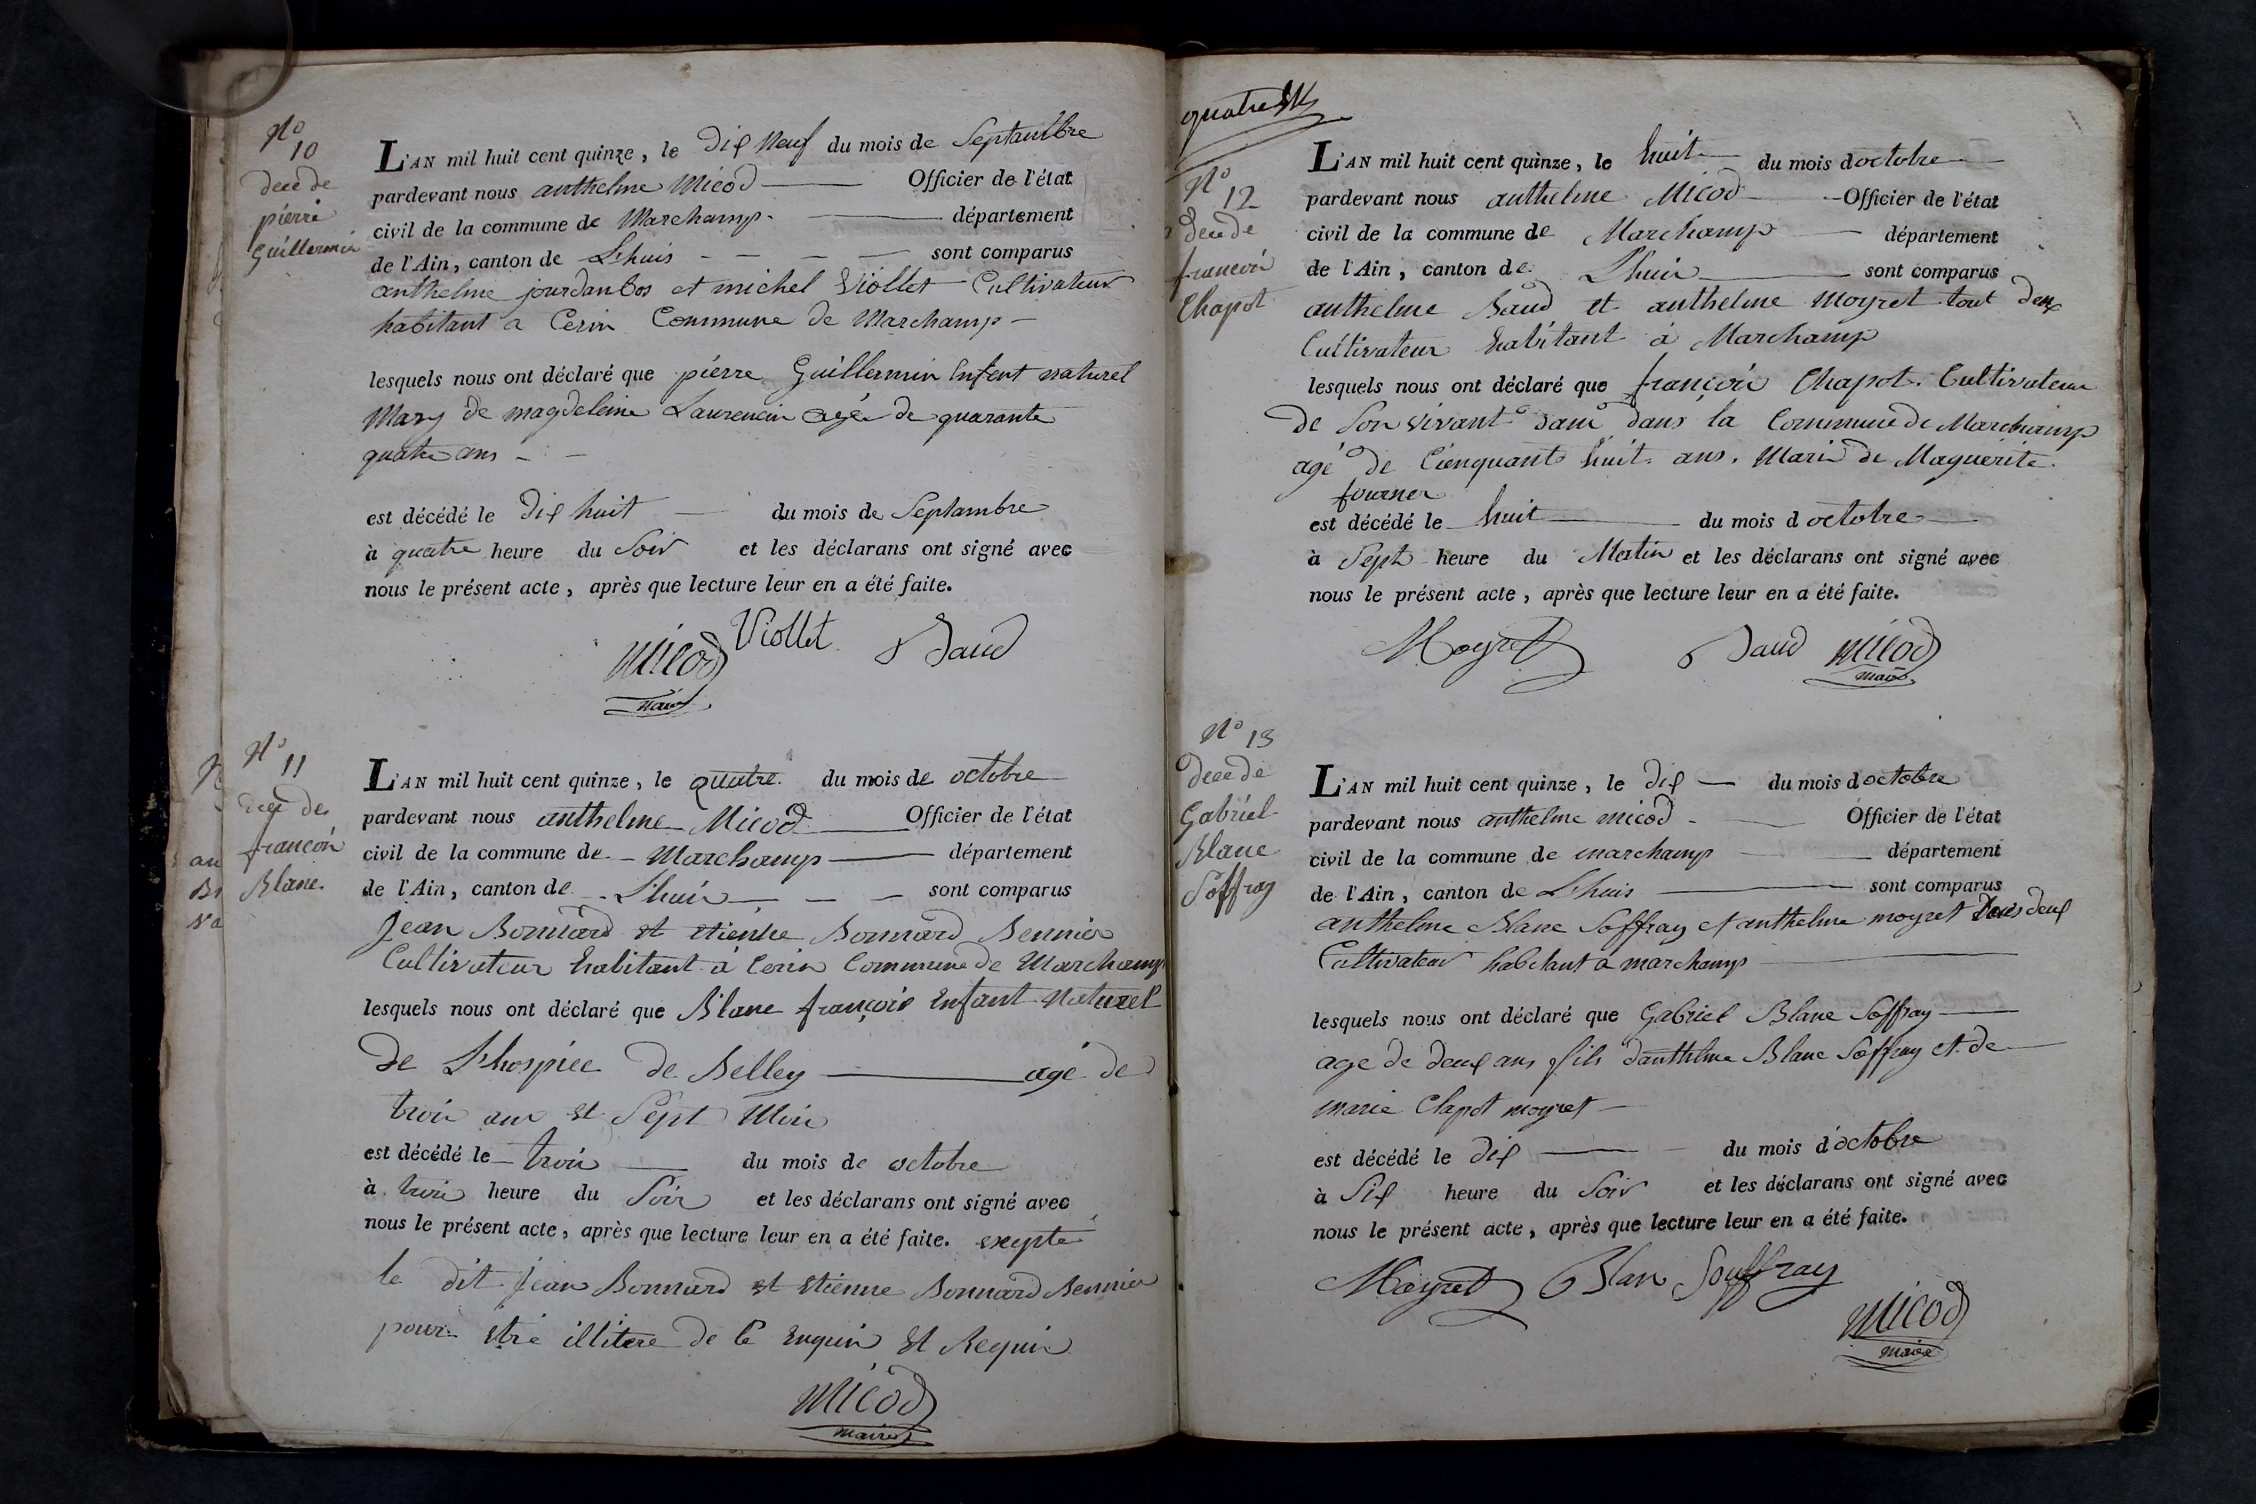 N° 10
decede
pierre
Guillermin
L'AN mil huit cent quinze, le dix neuf du mois de Septambre
pardevant nous anthelme Micod Officier de l'état
civil de la commune de Marchamp département
de l'Ain, canton de Lhuis sont comparus
anthelme jourdan Bos et michel Viollet Cultivateur
habitant a Cerin Commune de Marchamp
lesquels nous ont déclaré que pierre Guillermin Enfent naturel
Mary de magdeleine Laurencin agé de quarante
quatre ans
est décédé le dix huit du mois de Septambre
à quatre heure du Soir et les déclarans ont signé avec
nous le présent acte, après que lecture leur en a été faite.
Viollet Baud
Micod
maire
N° 11
françois
Blanc
L'AN mil huit cent quinze, le quatre du mois de octobre
pardevant nous anthelme Micod Officier de l'état
civil de la commune de Marchamp département
de l'Ain, canton de Lhuis sont comparus
Jean Bonnard et etienne Bonnard Bennier
Cultivateur habitant à Cerin Commune de Marchamp
lesquels nous ont déclaré que Blanc françois Enfant Naturel
de L'hospice de Belley agé de
trois ans et Sept Mois
est décédé le trois du mois de octobre
à trois heure du Soir et les déclarans ont signé avec
nous le présent acte, après que lecture leur en a été faite. exepté
le dit Jean Bonnard et etienne Bonnard Bennier
pour etre illitere de ce Enquis et Requis
Micod
maire
quatre
N° 12
decede
francois
Chapot
L'AN mil huit cent quinze, le huit du mois doctobre
pardevant nous anthelme Micod Officier de l'état
civil de la commune de Marchamp département
de l'Ain, canton de Lhuis sont comparus
anthelme Baud et anthelme Moyret tout deux
Cultivateur habitant à Marchamp
lesquels nous ont déclaré que françois Chapot Cultivateur
de Son vivant dans la Commune de Marchamp
agé de Cienquant huit ans. Mari de Maguerite
fourner
est décédé le huit du mois d octobre
à Sept heure du Matin et les déclarans ont signé avec
nous le présent acte, après que lecture leur en a été faite.
Moyret Baud Micod
maire
N° 13
decede
Gabriel
Blanc
Soffray
L'AN mil huit cent quinze, le dix du mois doctobre
pardevant nous anthelme micod Officier de l'état
civil de la commune de marchamp département
de l'Ain, canton de Lhuis sont comparus
anthelme Blanc Soffray et anthelme moyret Tous deux
Cultivateur habitant a marchamp
lesquels nous ont déclaré que Gabriel Blanc Soffray
age de deux ans fils danthelme Blanc Soffray et de
marie Clapot moyret
est décédé le dix du mois d'octobre
à Six heure du Soir et les déclarans ont signé avec
nous le présent acte, après que lecture leur en a été faite.
Moyret Blan Souffray
Micod
maire